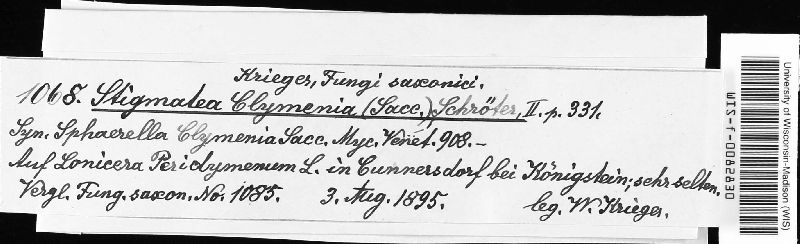 Krieger, Fungi saxonici.
1068. Stigmatea Clymenia (Sacc.) Schröter, II. p. 331.
Syn. Sphaerella Clymenia Sacc. Myc. Venet. 908. –
Auf Lonicera Periclymenum L. in Cunnersdorf bei Königstein; sehr selten.
Vergl. Fung. saxon. No. 1085. 3. Aug. 1895. leg. W. Krieger.
WIS-f-0082830
University of Wisconsin-Madison (WIS)